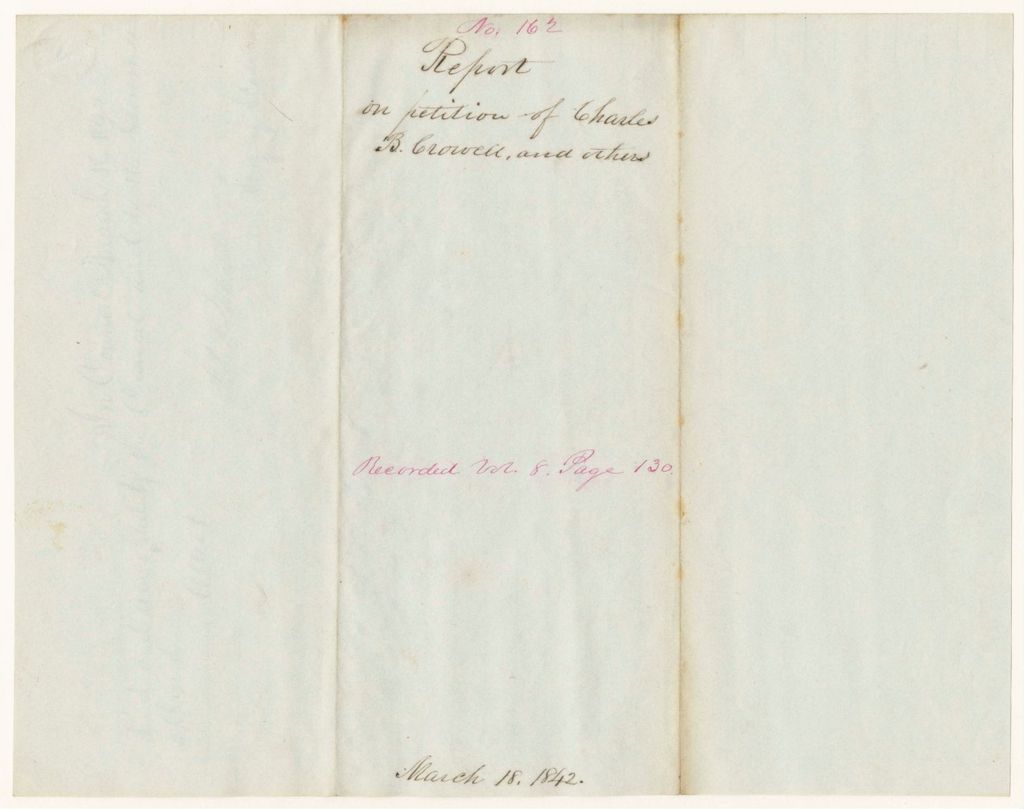 No. 162
Report
on petition of Charles
B. Crowell, and others
Recorded Vol. 8. Page 130.
March 18. 1842.